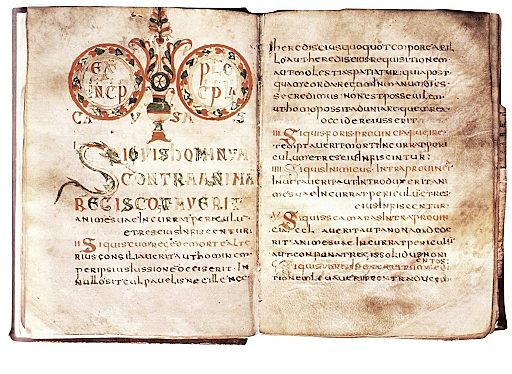 CA V SA S
SIQUISDOMINUM
CONTRAANIMA
REGISCOTAVERIT
ANIMESUAEINCURRATPERICULU
ETRESEIUSINFISCENTUR
II SIQUISCUMREGEDEMORTEALTE
RIUSCONSILIAVERITAUTHOMINEM
PERIPSIUSIUSSIONEOCCISERIT IN
NULLOSITCULPAVELISNEC
HEREDISEIUSQUOQUOTEMPOREAEIL
LOAUTHEREDISEIUSREQUISITIONEM
AUTMOLESTIASPATIATUR QUIAPOST
QUAMCORDAREGUMINMANUMDEIES
SECREDIMUS NONESTPOSSE
UTHOMOPOSSITADUNIAREQUEMREX
OCCIDEREIUSSERIT
III SIQUISFORISPROUINCIAFUGIRE
TEMPTAVERITMORTISINCURRATPERI
CULUMETRESEIUSINFISCENTUR
IIII SIQUISINIMICUS INTRAPROUINCI
INVITAVERITAUTINTRODUXERITANI
MESUAEINCURRATPERICULUETRES
EIUSINFISCENTUR
V SIQUISSCAMARASINTRAPROUIN
CIACEL AVERITAUTANNONAMDEDE
RITANIMESUAEINCURRATPERICULU
AUTCONPONATREGISSOLIDUSNONI
ENTOS